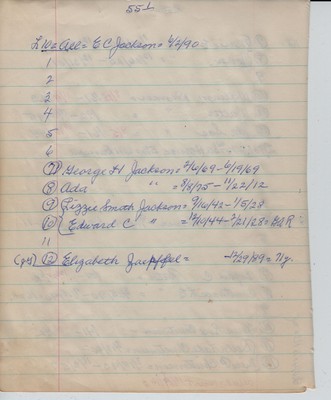 551
L 10 = All = E C Jackson = 4/2/90
1
2
2
3
4
5
6
(7) George H Jackson = 2/6/69 - 6/19/69
(8) Ada " " = 8/8/75 - 11/22/12
(9) Lizzie Smith Jackson = 9/16/42 - 1/5/28
(10) Edward C " = 12/10/44 - 2/21/28 = G.A.R =
11
(12) Elizabeth Zaepffel = -12/29/89 = 71 y.